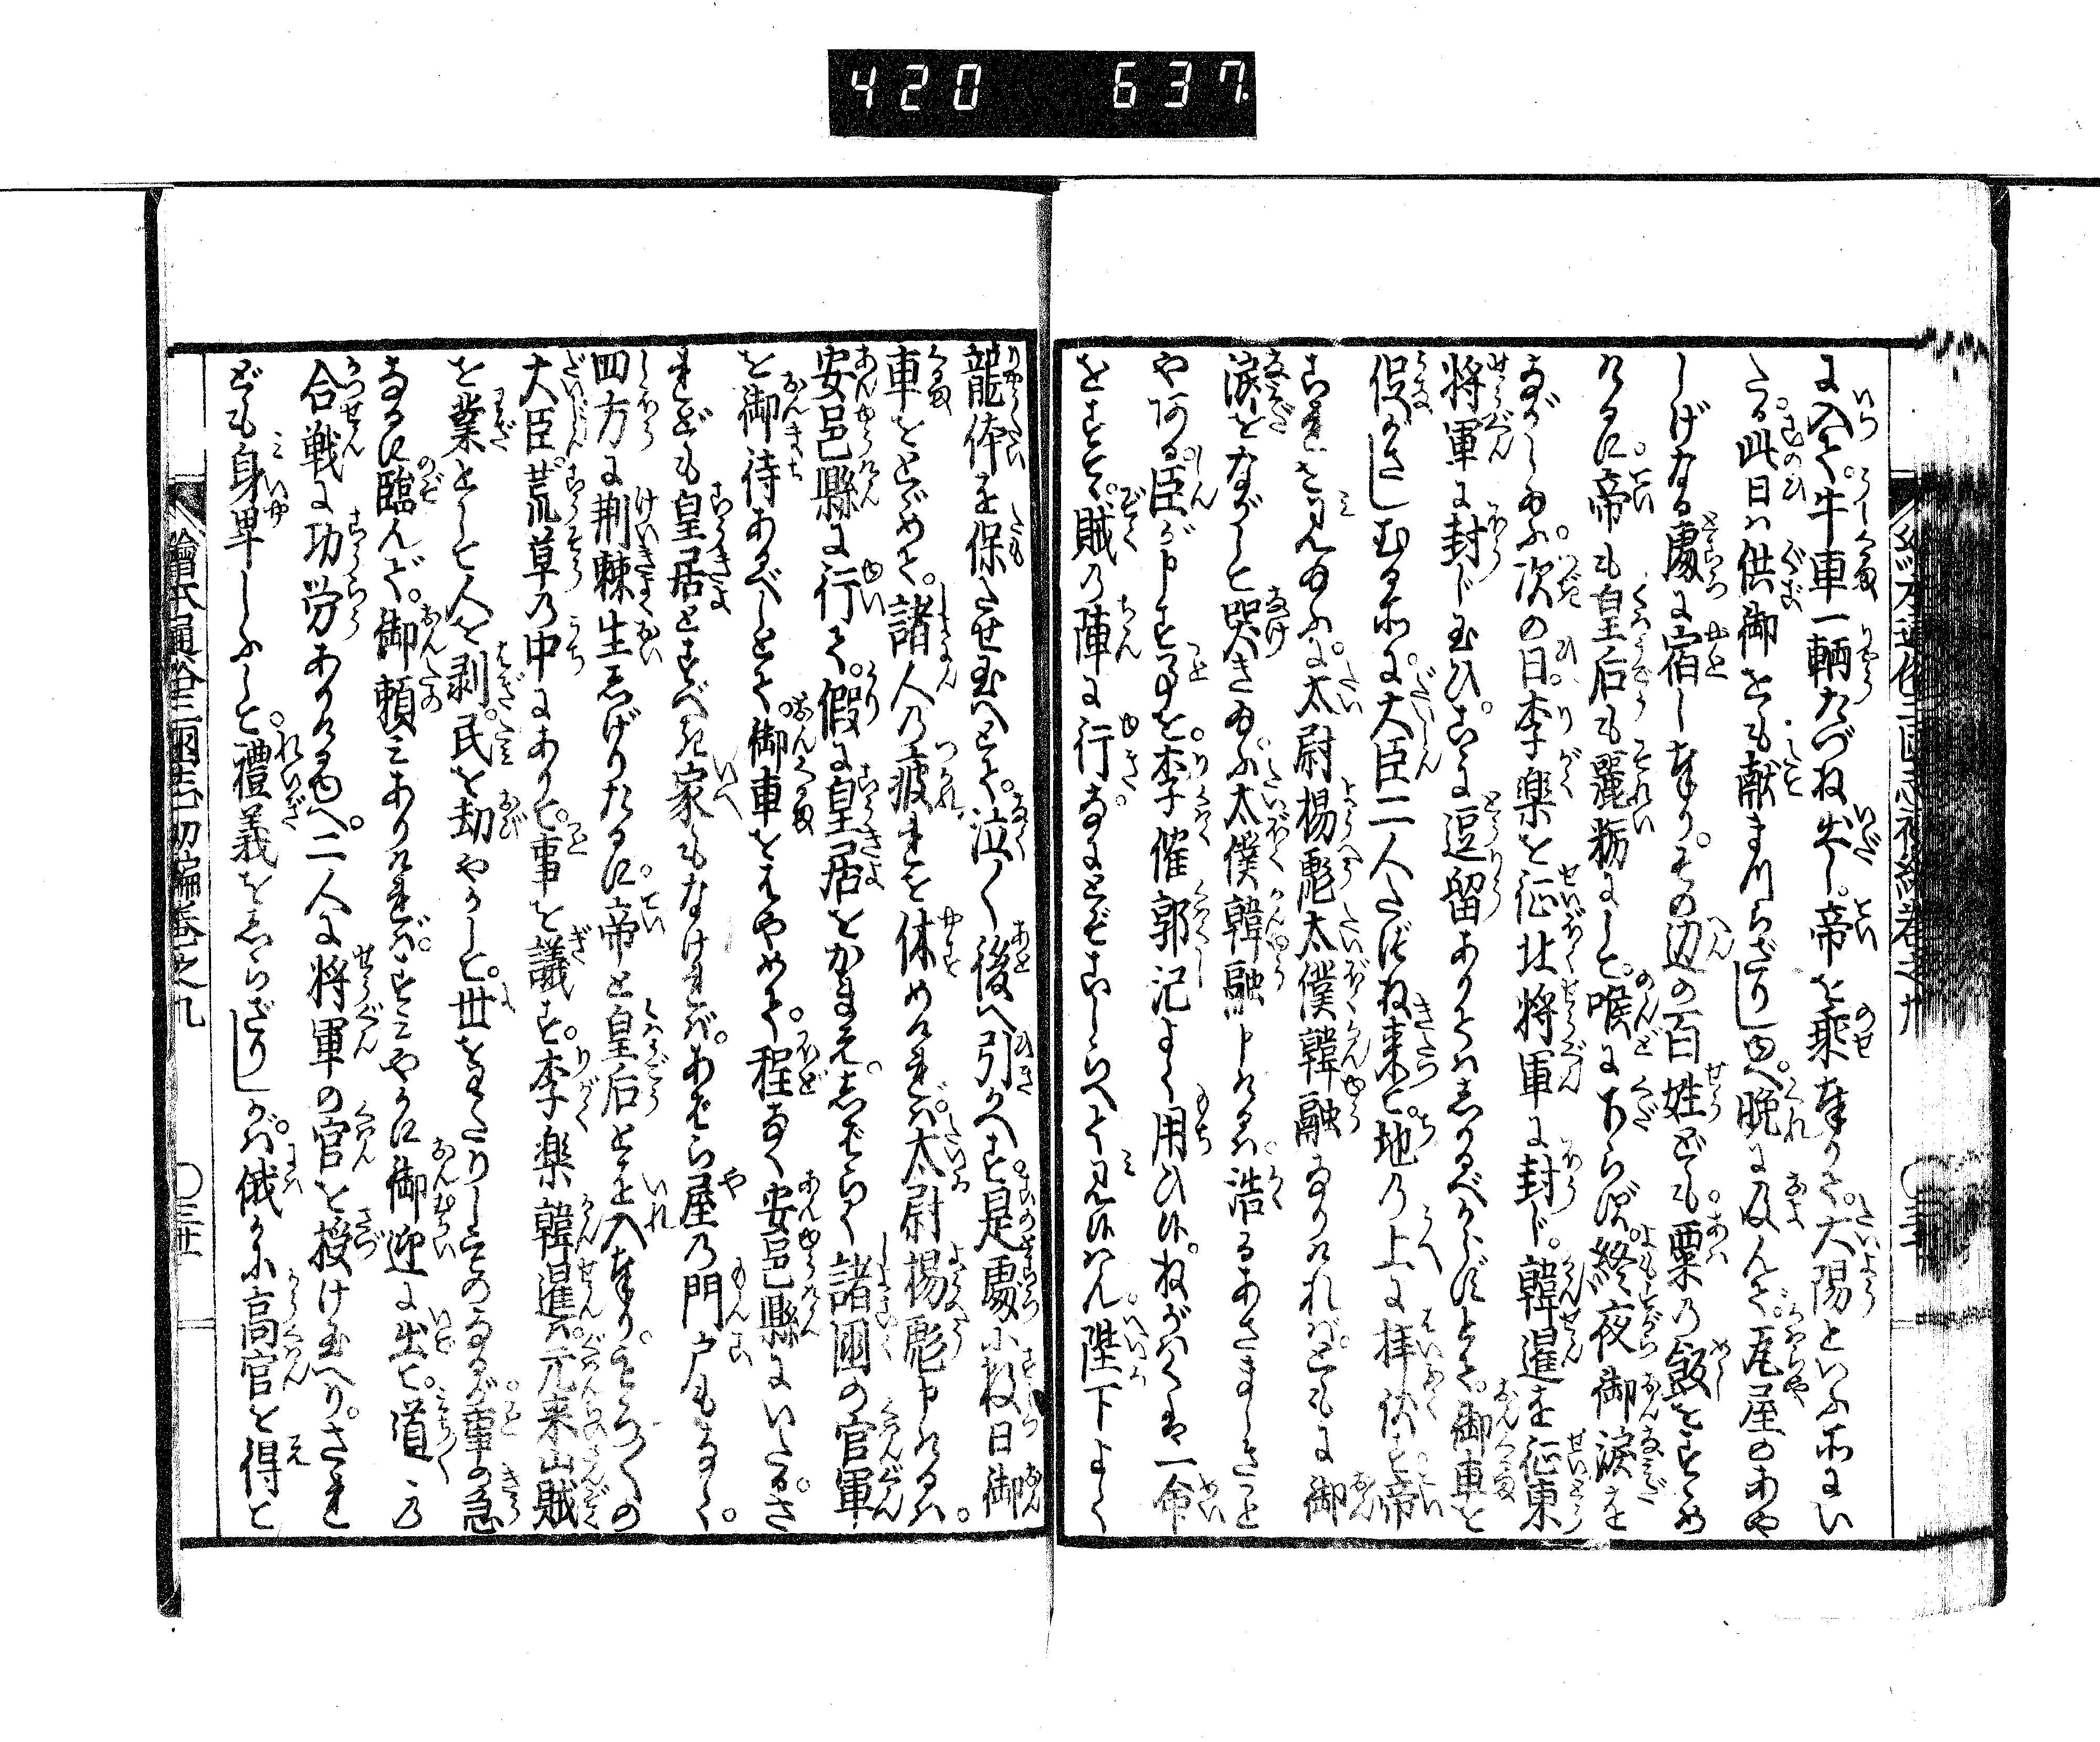 420 637
に入て。牛車一輌たづね出し。帝を乗奉りて。大陽といふ所にい
たる。此日は供御をも献まいらざりしゆへ。晩に及んで。庭屋のあや
しげなる處に宿し奉り。その辺の百姓ども。粟の飯をすゝめ
けるに。帝も皇后も麗粝にして。喉に下らず。終夜御涙を
ながし給ふ。次の日。李楽を征北将軍に封じ。韓暹を征東
将軍に封じ玉ひ。こゝに逗留ありてはしかるべからずとて。御車を
促がさしむる所に。大臣二人たづね来て。地の上に拝伏す。帝
これを見給ふに。太尉楊彪太僕韓融なりければ。ともに御
涙をながして哭き給ふ。太僕韓融申けるは。浩るあさましきこと
や阿る。臣が申すことを。李傕郭汜よく用ひ候。ねがはくは一命
をすてゝ。賊の陣に行。なにとぞこしらへて見候はん。陛下よく
龍体を保たせ玉へとて。泣〳〵後へ引かへす。是處に数日御
車をとゞめて。諸人の疲れを休めければ。太尉楊彪申けるは。
安邑縣に行て。假に皇居をかまえ。しばらく諸国の官軍
を御待あるべしとて。御車をはやめて。程なく安邑縣にいたる。さ
れども皇居とすべき家もなければ。あばら屋の門戸もなく。
四方に荊棘生しげりたるに。帝と皇后とを入奉り。もろ〳〵の
大臣。荒草の中にありて。事を議す。李楽韓暹は。元来山賊
を業として。人を剥。民を劫やかして。世をわたりしものなるが。事の急
なるに臨んで。御頼みありければ。すみやかに御迎に出て。道々の
合戦に功労ありけるゆへ。二人に将軍の官を授け玉へり。され
ども身卑しふして。禮義をしらざりしが。俄かに高官を得と
繪本通俗三國志初編巻之九
〇三十